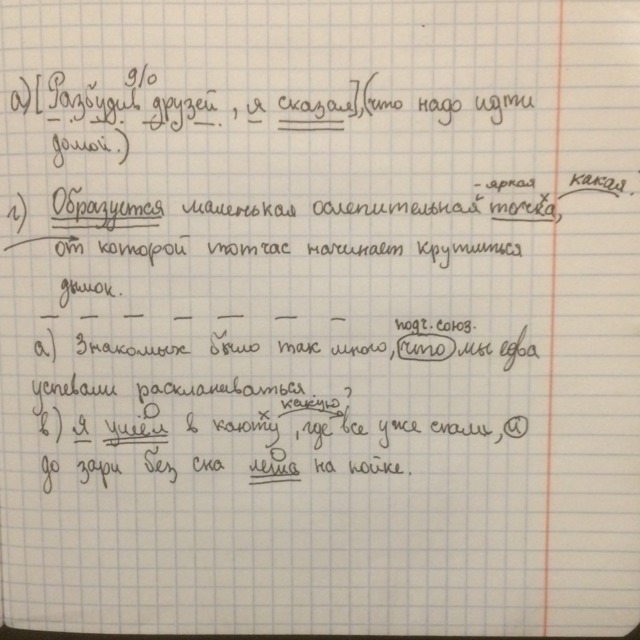 д/о
а) [Разбудив друзей, я сказал], (что надо идти
домой.)
- яркая какая.
г) Образуется маленькая ослепительная точка,
от которой тотчас начинает крутиться
дымок.
подч. союз.
а) Знакомых было так много, что мы едва
успевали раскланиваться.
какую?
в) Я ушёл в каюту, где все уже спали, и
до зари без сна лежал на койке.